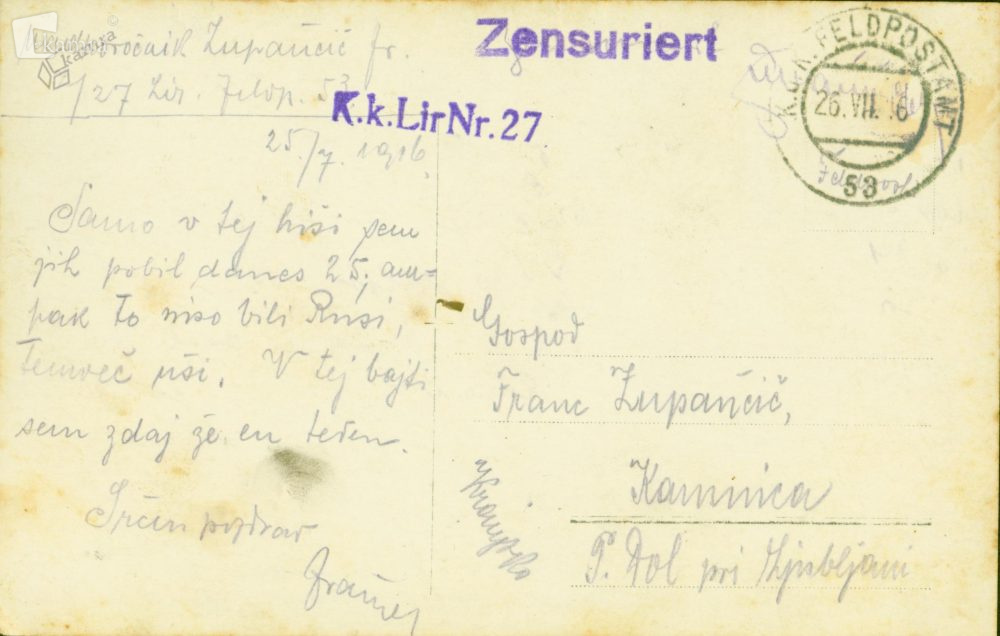 Zupančič fr.
/27 Lir. Feldp. 53.
25/7. 1916.
Samo v tej hiši sem
jih pobil danes 25, am-
pak to niso bili Rusi,
temveč uši. V tej bajti
sem zdaj že en teden.
Srčen pozdrav
Zensuriert
K.k.LirNr.27
K.u.K. FELDPOSTAMT
26.VII. 16
53
Gospod
Franc Zupančič,
Kamnica
P. Dol pri Ljubljani
Kranjsko